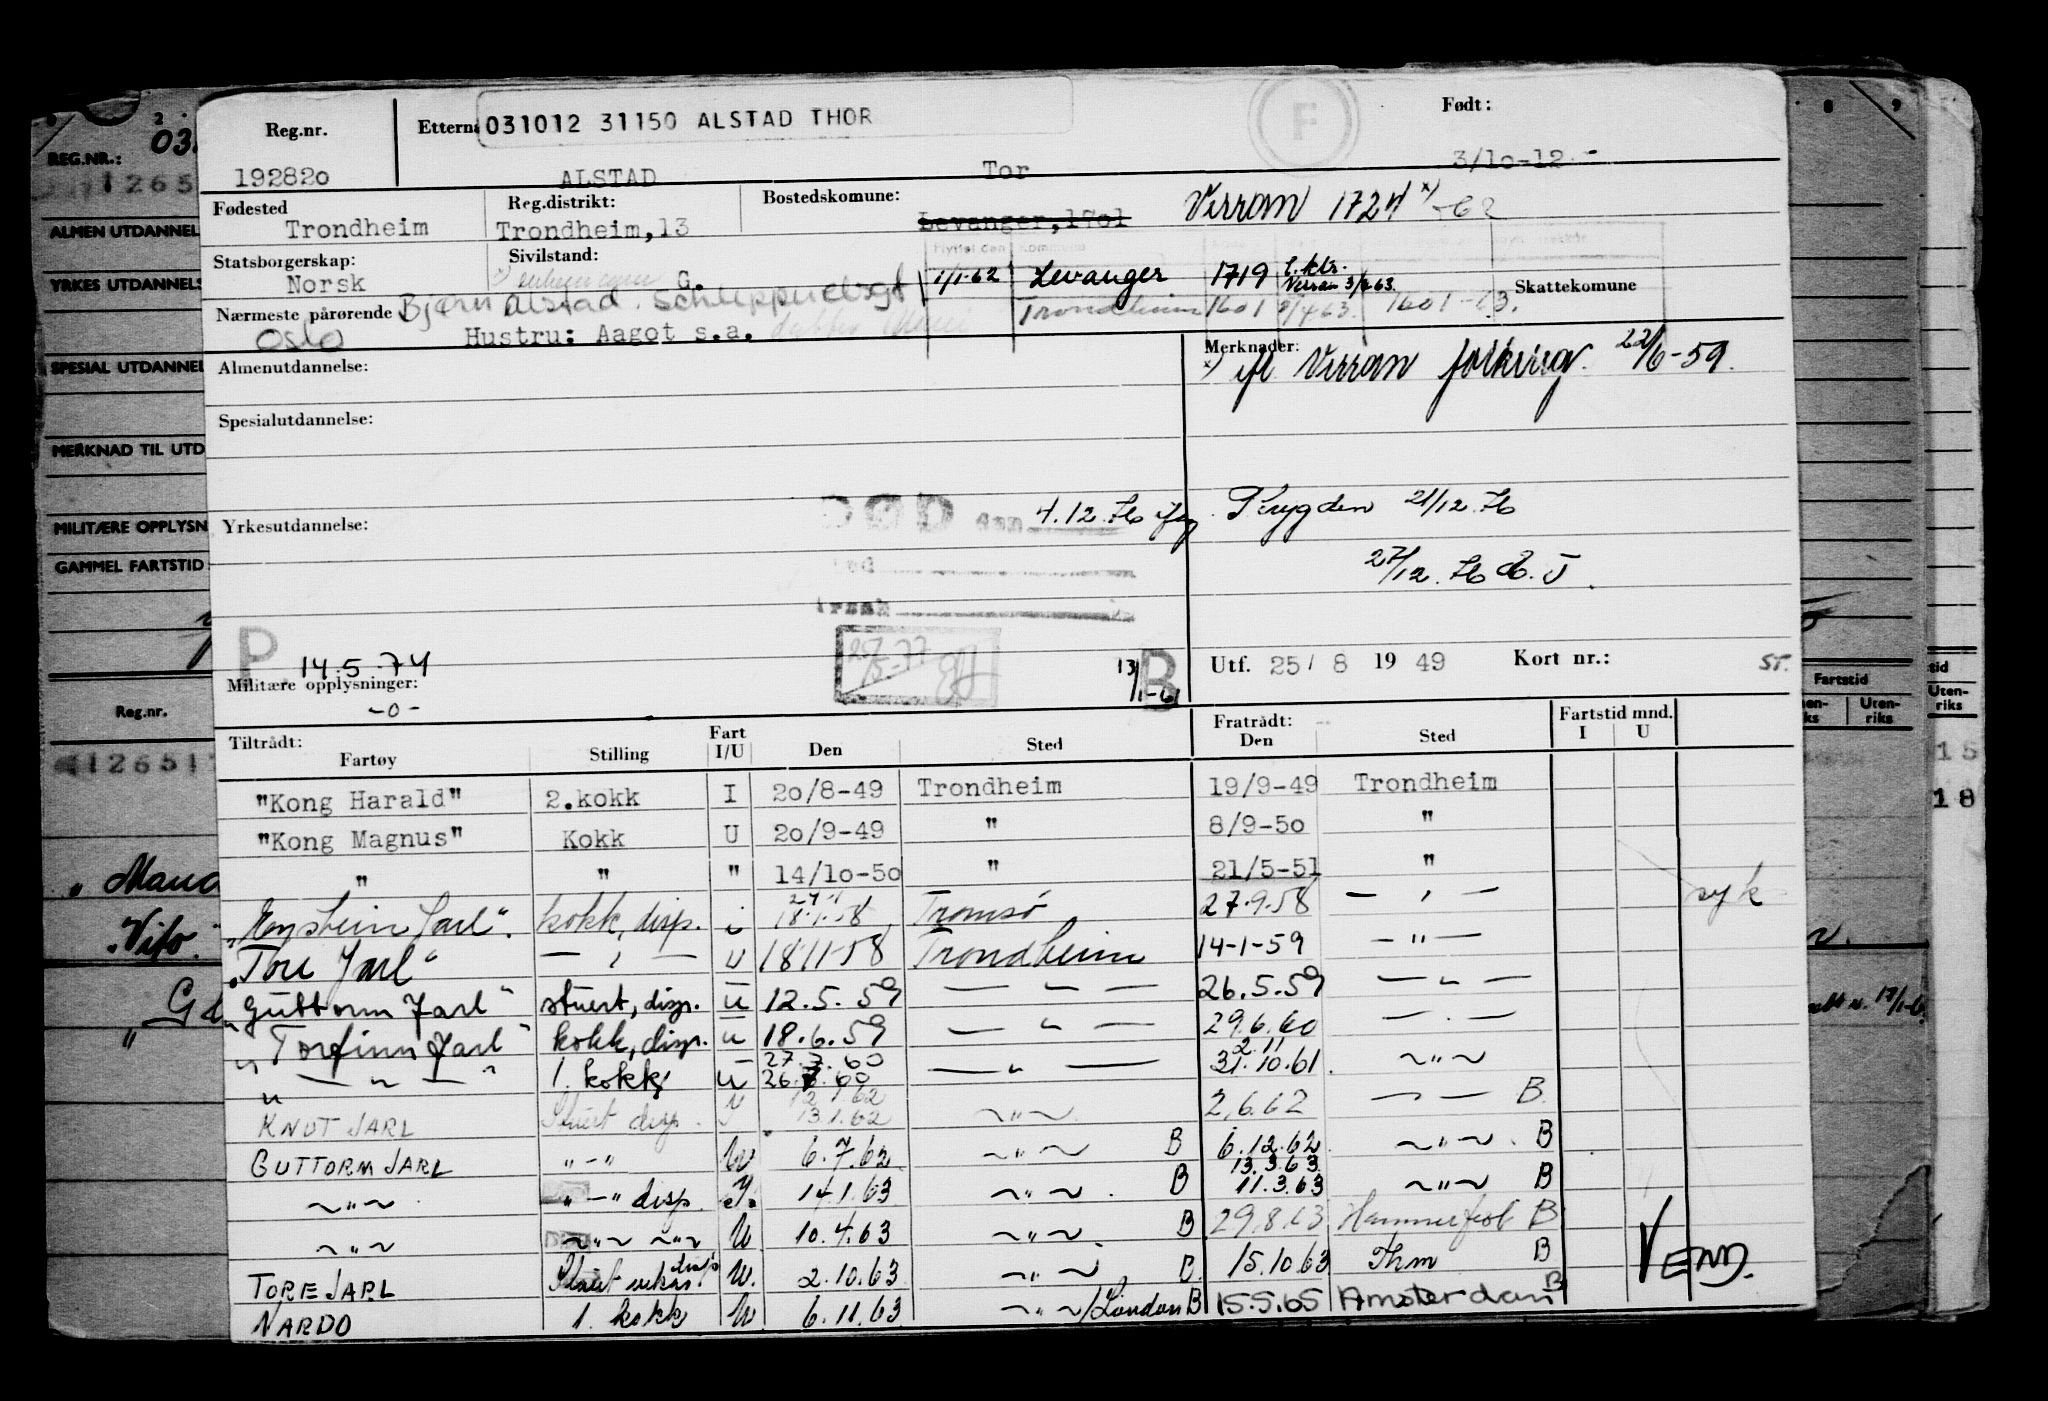 Reg.nr. Etterna 031012 31150 ALSTAD THOR F Født:
192820 ALSTAD Tor 3/10-12.-
Fødested Reg.distrikt: Bostedskomune: Verran 1724 x) -62
Trondheim Trondheim,13 Levanger,1701
Statsborgerskap: Sivilstand: Flyttet den Kommune
Norsk G. 1/1-62 Levanger 1719 Verran 3/4 63. Skattekomune
Nærmeste pårørende Bjørn Alstad. Trondheim 1601 1601-63.
Oslo Hustru: Aagot s.a.
Almenutdannelse: Merknader:
x) ifl Verran folkereg. 22/6-59.
Spesialutdannelse:
Yrkesutdannelse: DØD den 4.12.76 Trygden 21/12.76
27/12.76
P 14.5.74 25/5-77 13/1-61 B Utf. 25/ 8 19 49 Kort nr.: ST.
Militære opplysninger:
-0-
Tiltrådt: Fartøy Stilling Fart I/U Den Sted Fratrådt: Den Sted Fartstid mnd. I U
"Kong Harald" 2.kokk I 20/8-49 Trondheim 19/9-49 Trondheim
"Kong Magnus" Kokk U 20/9-49 " 8/9-50 "
" " " 14/10-50 " 21/5-51 "
"Øystein Jarl". kokk, disp. i 18.1.58 Tromsø 27.9.58 — , — syk
"Tore Jarl" — , — U 18.11.58 Trondheim 14-1-59 — " —
"Guttorm Jarl" stuert, disp. u 12.5.59 — " — 26.5.59 — " —
"Torfinn Jarl" kokk, disp. u 18.6.59 — " — 29.6.60 — . —
" — " — " 1. kokk u 27.7.60 26.7.60 — " — 2.11 31.10.61. ~ " ~
KNUT JARL Stuert disp. 12.1.62 13.1.62 ~ " ~ 2.6.62 — — B.
GUTTORM JARL " - " U 6.7.62 ~ " ~ B 6.12.62 ~ " ~ . B
~ " ~ " - " disp. I. 14.1.63 ~ " ~ . B 13.3.63 11.3.63 ~ " ~ B
~ " ~ ~ " ~ ~ " ~ U 10.4.63 ~ " ~ . B 29.8.63 Hammerfest B
TORE JARL Stuert disp U. 2.10.63 ~ " ~ B. 15.10.63 Thm B
NARDO 1. kokk U 6.11.63 ~ " ~ /London B 15.5.65 Amsterdam B
VEND.
REG.NR.: 03
1265
ALMEN UTDANNEL
YRKES UTDANNELS
SPESIAL UTDANNEL
MERKNAD TIL UTD
MILITÆRE OPPLYSN
GAMMEL FARTSTID
Reg.nr.
126517
"Vito."
8 9
Fartstid
Uten-riks
Uten-riks
15
18